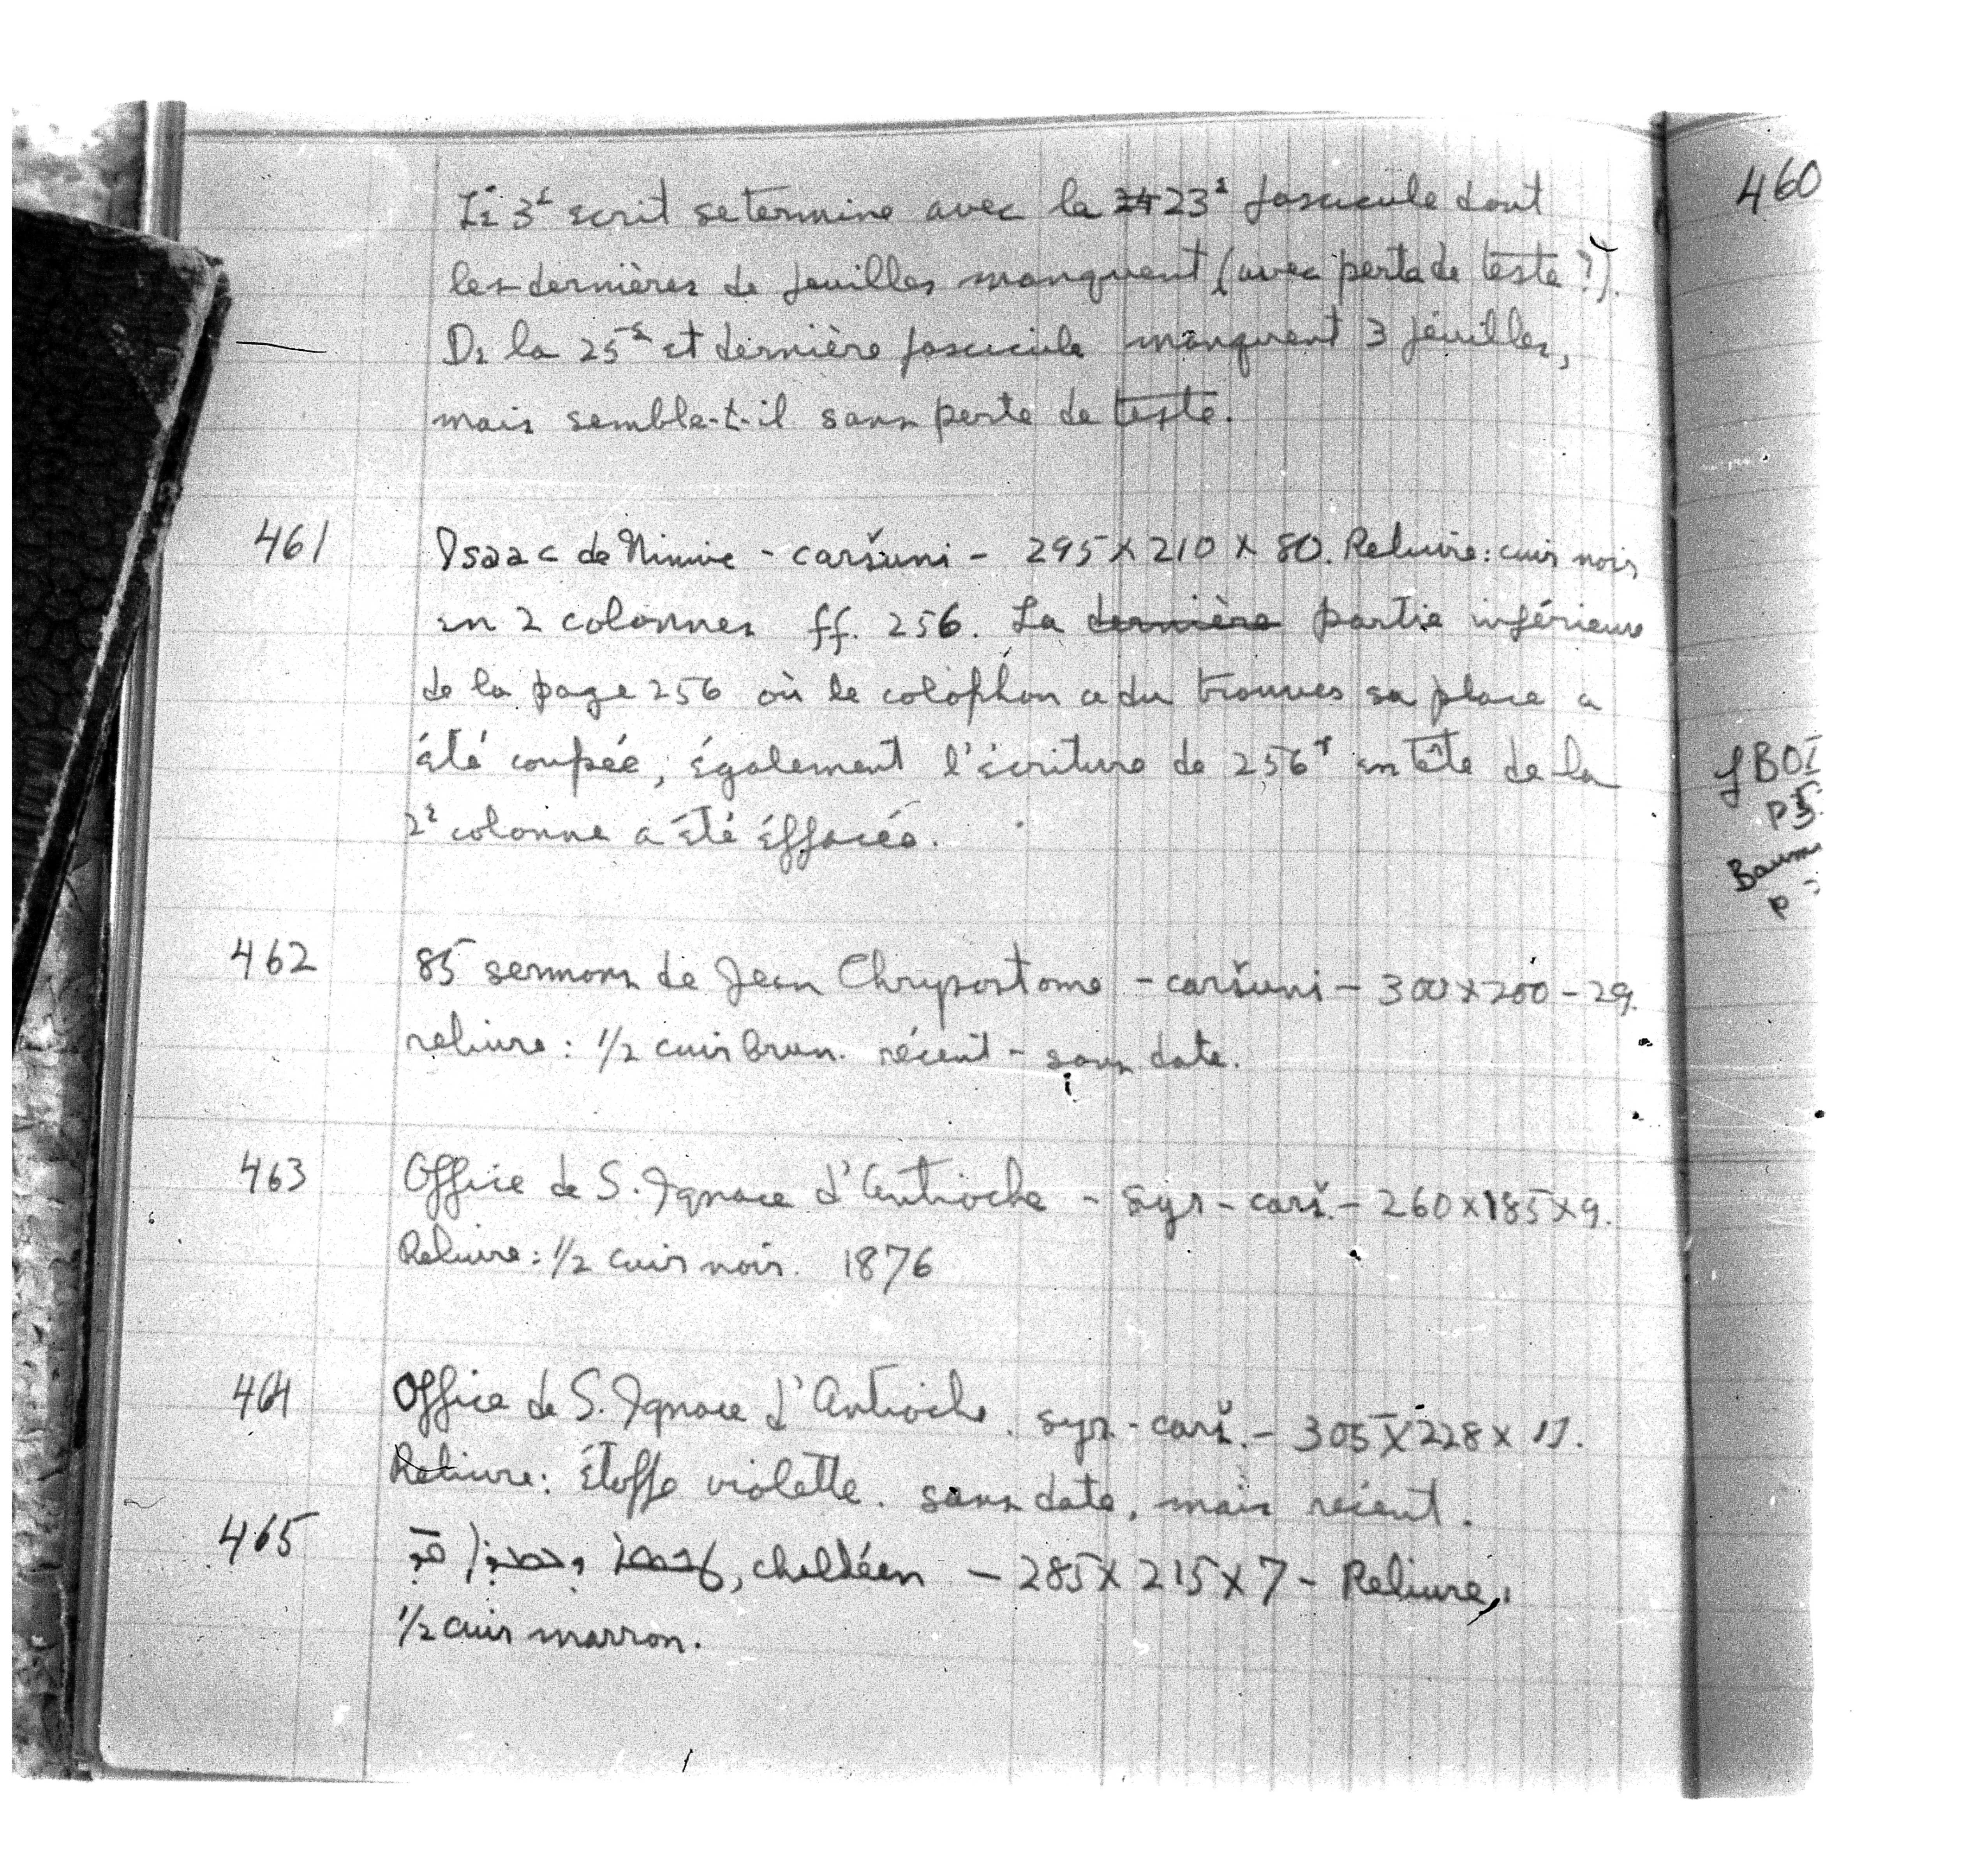 Le 3e écrit se termine avec la 23e fascicule dont
les dernières de feuilles manquent (avec perte de teste?).
De la 25e et dernière fascicule manquent 3 feuilles,
mais semble-t-il sans perte de teste.
461 Isaac de Ninive - caršuni - 295 x 210 x 80. Reliure: cuir noir
en 2 colonnes ff. 256. La dernière partie inférieure
de la page 256 où le colophon a du trouver sa place a
été coupée, également l'écriture de 256r en tête de la
2e colonne a été éffacée.
462 85 sermons de Jean Chrysostome - caršuni - 300 x 200 - 29.
reliure: 1/2 cuir brun. récent - sans date.
463 Office de S. Ignace d'Antioche - Syr - carš. - 260 x 185 x 9.
Reliure: 1/2 cuir noir. 1876
464 Office de S. Ignace d'Antioche. syr. - carš. - 305 x 228 x 17.
Reliure: étoffe violette. sans date, mais récent.
465 , chaldéen - 285 x 215 x 7 - Reliure,
1/2 cuir marron.
460
fBOI
p5
Baum
p